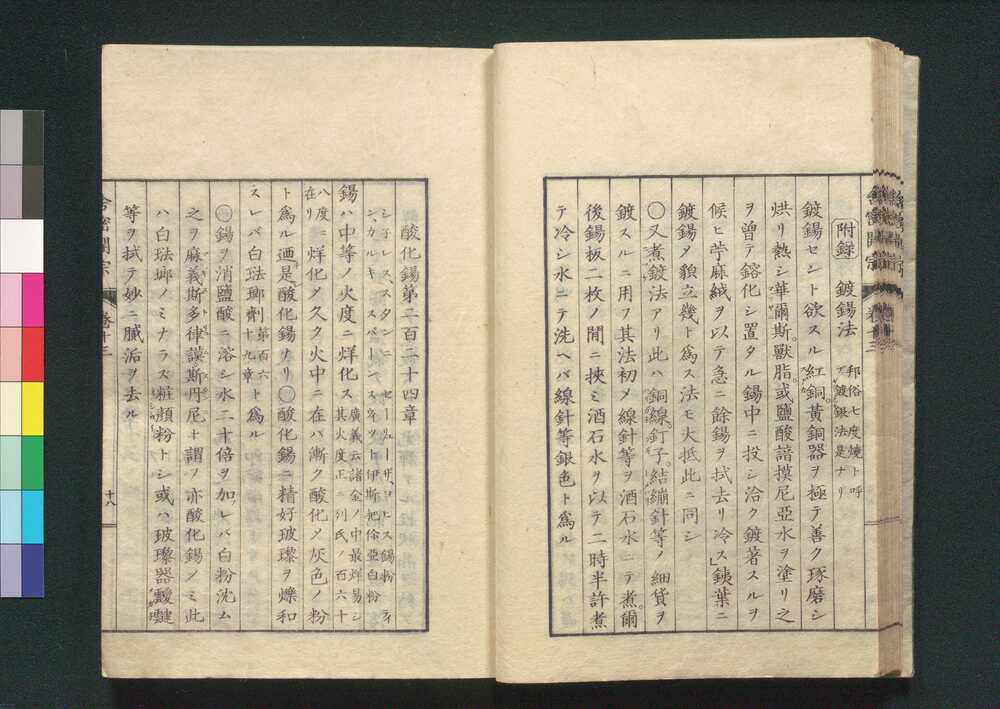 附録 鍍錫法 邦俗七度燒ト呼ブ鍍銀法是ナリ
鍍錫セシト欲スル紅銅。黃銅器ヲ極テ善ク琢磨シ
烘リ熱シ華爾斯。獸脂。或鹽酸諳摸尼亞水ヲ塗リ之
ヲ曾テ鎔化シ置タル錫中ニ投シ洽ク鍍著スルヲ
候ヒ苧麻絨ヲ以テ急ニ餘錫ヲ拭去リ冷ス」銕葉ニ
鍍錫ノ貌立幾ト爲ス法モ大抵此ニ同シ
〇又煮鍍法アリ此ハ銅線。釘子。結繃針等ノ細貨ヲ
鍍スルニ用フ其法初メ線針等ヲ酒石水ニテ煮。爾
後錫板二枚ノ間ニ挾ミ酒石水ヲ以テ二時半許煮
テ冷シ水ニテ洗ヘバ線針等銀色ト爲ル
舍密開宗 卷十三
酸化錫第二百二十四章
錫ハ中等ノ火度ニ烊化ス 廣義云諸金ノ中最烊易シ其火度正ニ列氏ノ百六十
八度ニ在リ 烊化メ久ク火中ニ在バ漸ク酸化メ灰色ノ粉
ト爲ル迺是酸化錫ナリ〇酸化錫ニ精好玻瓈ヲ爍和
スレバ白琺瑯劑 第百六十九章 ト爲ル
〇錫ヲ消鹽酸ニ溶シ水二十倍ヲ加レバ白粉沈ム
之ヲ麻義斯多律謨斯丹尼ト謂フ亦酸化錫ノミ此
ハ白琺瑯ノミナラス粧顏粉トシ或ハ玻瓈器靉靆
等ヲ拭テ妙ニ膩垢ヲ去ル
舍密開宗 卷十三 十八